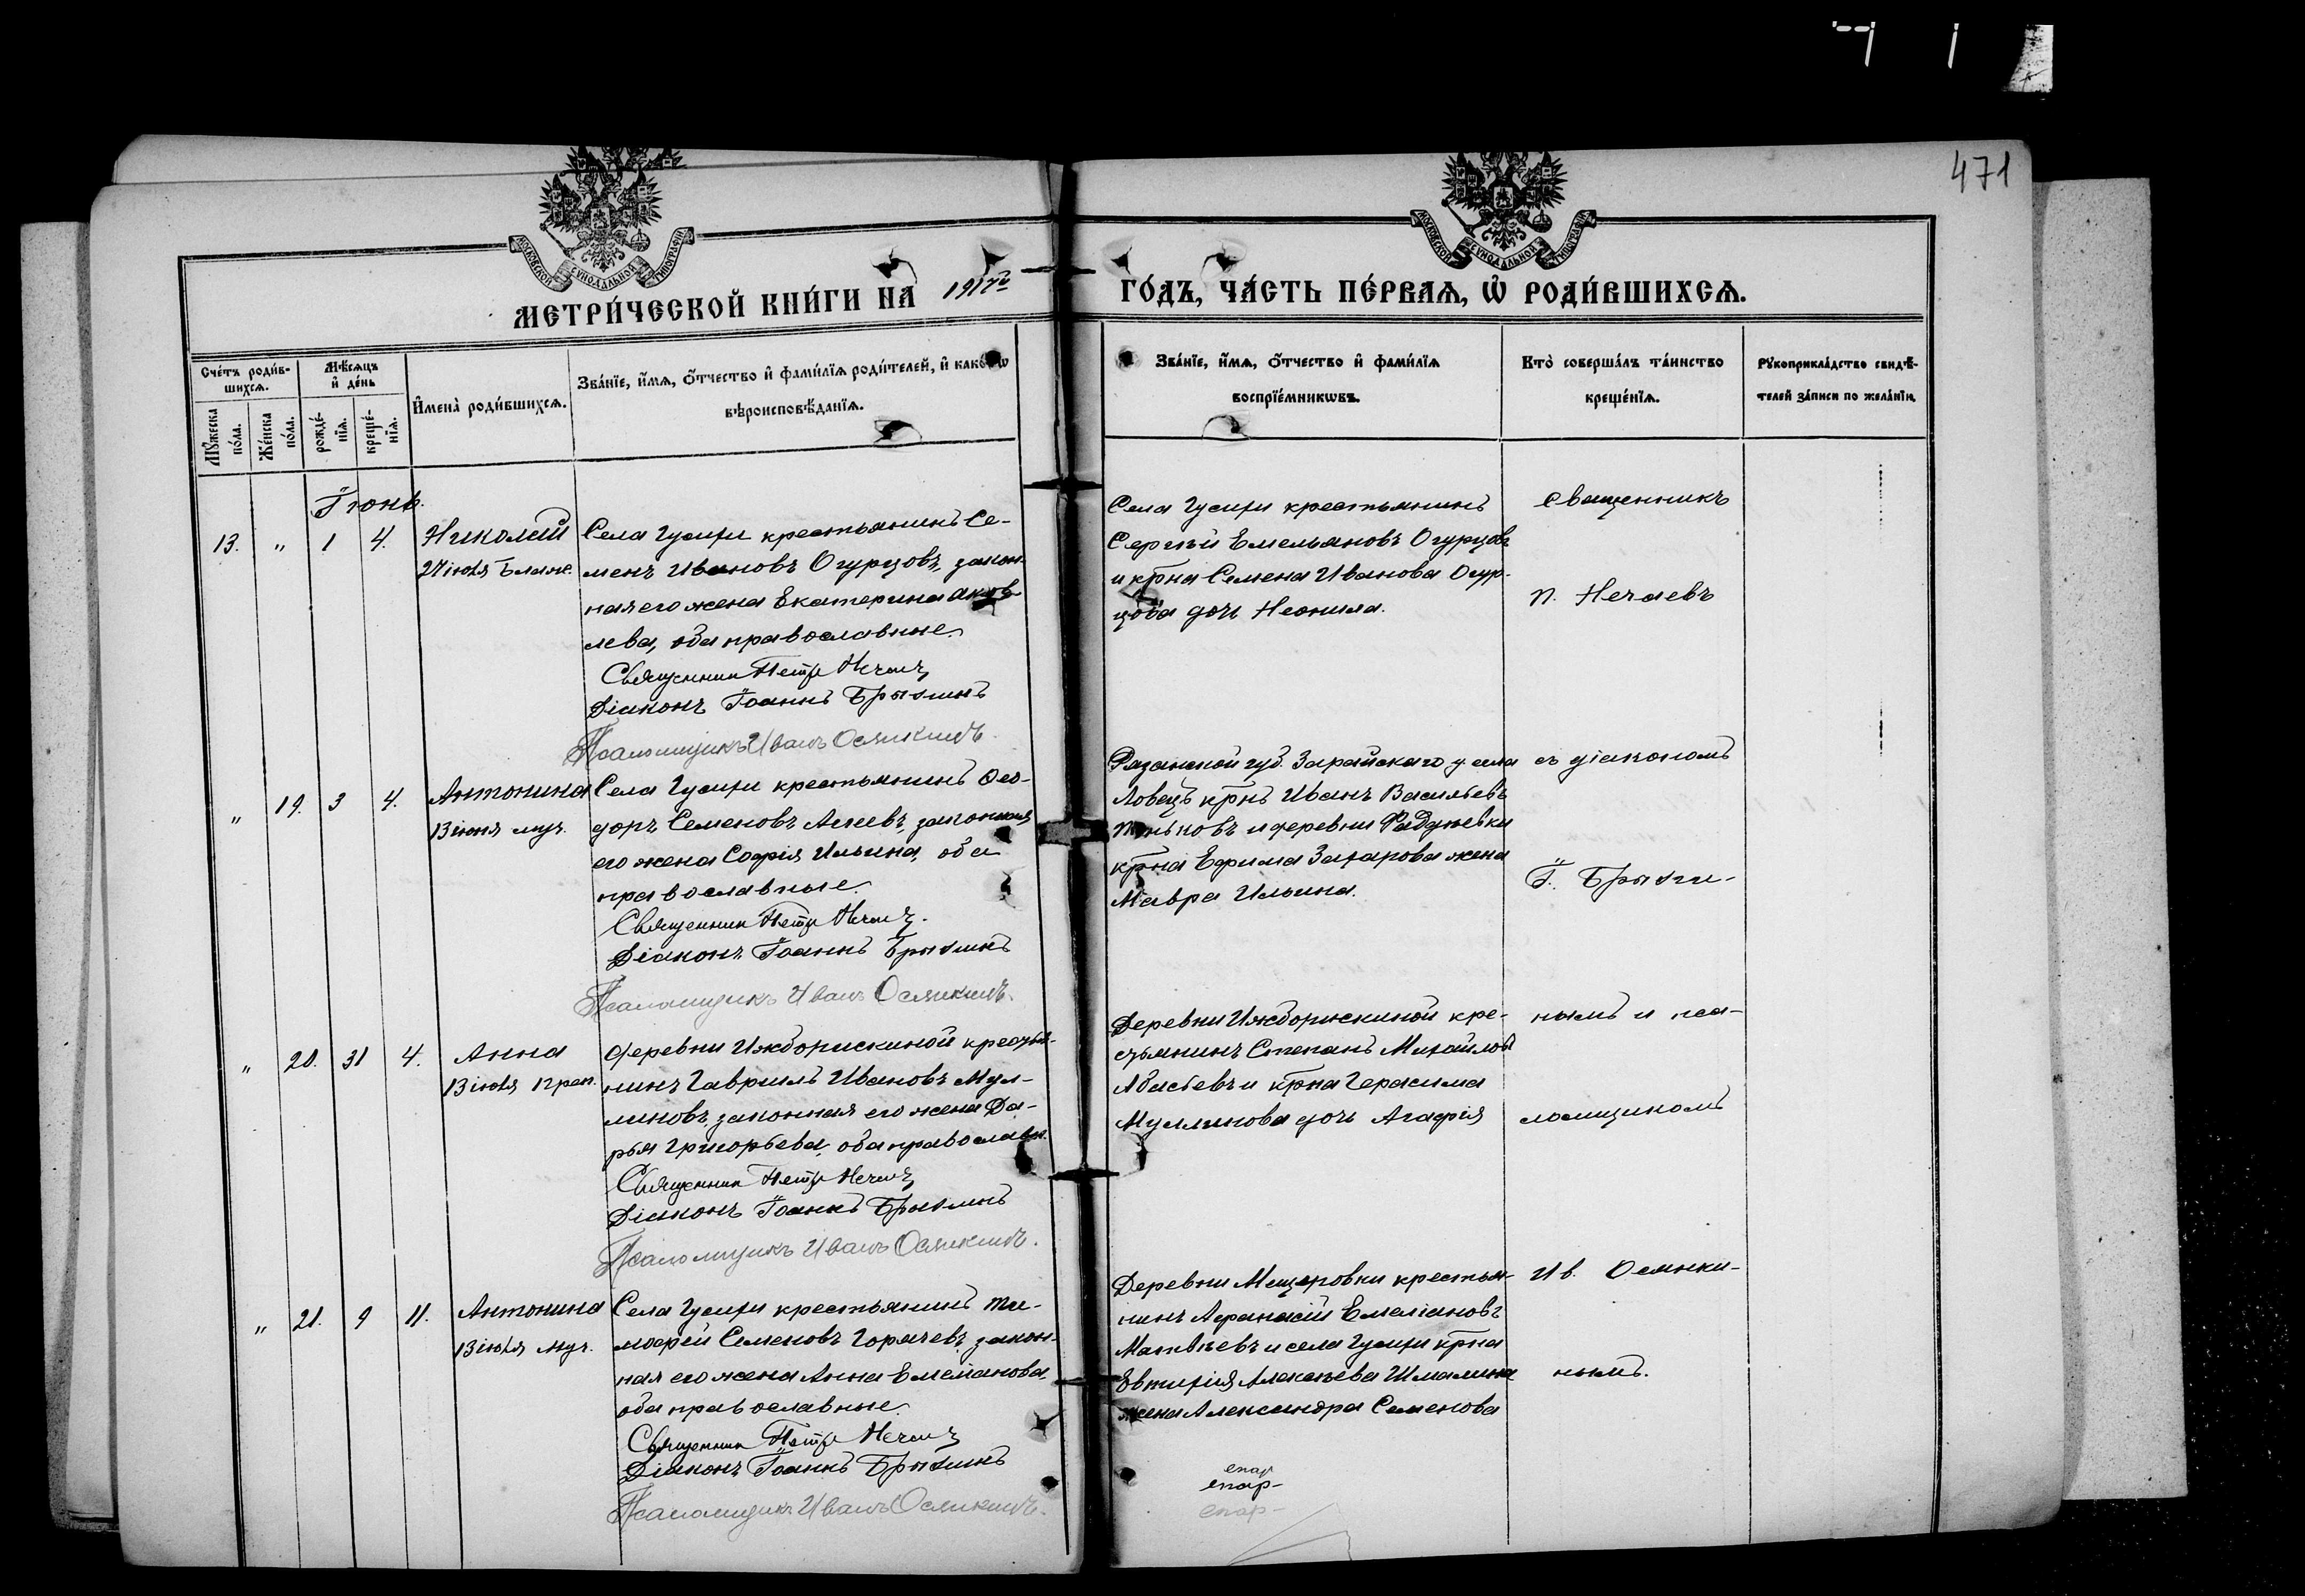 471
МОСКОВСКОЙ СѴНОДАЛЬНОЙ ТИПОГРАФІИ
МОСКОВСКОЙ СѴНОДАЛЬНОЙ ТИПОГРАФІИ
МЕТРИ́ЧЕСКОЙ КНИ́ГИ НА 1917й ГО́ДЪ, ЧА́СТЬ ПЕ́РВАѦ, Ѡ҆ РОДИ́ВШИХСѦ.
Сче́тъ роди́в-
шихсѧ.
Мꙋ́жеска
по́ла.
Же́нска
по́ла.
Мѣ́сѧцъ
и҆ де́нь
рожде́-
нїѧ.
креще́-
нїѧ.
И҆мена̀ роди́вшихсѧ.
Зва́нїе, и҆́мѧ, ѻ҆́тчество и҆ фами́лїѧ роди́телей, и҆ како́гѡ
вѣроисповѣ́данїѧ.
Зва́нїе, и҆́мѧ, ѻ҆́тчество и҆ фами́лїѧ
воспрїе́мникѡвъ.
Кто̀ соверша́лъ та́инство
креще́нїѧ.
Рꙋкоприкла́дство свидѣ́-
телей за́писи по жела́нїю.
Іюнь.
13. " 1 4. Николай
27 іюля Блаж.
Села Гусихи крестьянинъ Се-
менъ Ивановъ Огурцовъ, закон-
ная его жена Екатерина Яков-
лева, оба православные.
Священник Петр Нечаев
Діаконъ Іоаннъ Брызлинъ
Псаломщикъ Иванъ Осянкинъ.
Села Гусихи крестьянинъ
Сергѣй Емельяновъ Огурцовъ
и крна Семена Иванова Огур-
цова дочь Неонила.
Священникъ
П. Нечаевъ
" 19. 3 4. Антонина
13 іюня муч.
Села Гусихи крестьянинъ Ѳео-
доръ Семеновъ Агеевъ, законная
его жена Софія Ильина, оба
православные.
Священник Петр Нечаев.
Діаконъ Іоаннъ Брызлинъ
Псаломщикъ Иванъ Осянкинъ.
Рязанской губ. Зарайскаго у. села
Ловецъ крнъ Иванъ Васильевъ
и деревни
крна Ефима Захарова жена
Мавра Ильина.
съ діакономъ
І. Брызли-
" 20. 31 4. Анна
13 іюля прап.
деревни Ижборискиной крестья-
нинъ Гавріилъ Ивановъ Мул-
линовъ, законная его жена Да-
рья Григорьева, оба православн.
Священник Петр Нечаев
Діаконъ Іоаннъ Брызлинъ
Псаломщикъ Иванъ Осянкинъ.
Деревни Ижборискиной кре-
стьянинъ Степанъ Михайловъ
и крна Герасима
Муллинова дочь Агафія
нымъ и пса-
ломщикомъ
" 21. 9 11. Антонина
13 іюля муч.
Села Гусихи крестьянинъ Ти-
моѳей Семеновъ Горячевъ, закон-
ная его жена Анна Емеліанова,
оба православные.
Священник Петр Нечаев
Діаконъ Іоаннъ Брызлинъ
Псаломщикъ Иванъ Осянкинъ.
Деревни Мещеровки крестья-
нинъ Аѳанасій Емеліановъ
Матвѣевъ и села Гусихи крна
Евтихія Алексѣева Шмалина
жена Александра Семенова
Ив. Осянки-
нымъ.
епар
епар-
епар-